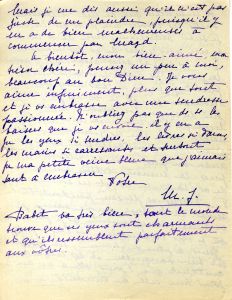 Mais je me dis aussi que ce n'est pas
juste de me plaindre, puisqu'il y
en a de bien malheureuses à
commencer par Magd.
À bientôt, mon bien-aimé, ma
bien chérie, pensez un peu à moi,
beaucoup au bon Dieu. Je vous
aime infiniment, plus que tout
et je vous embrasse avec une tendresse
passionnée. N'oubliez pas que de
baisers que je vous il y en a
pr les yeux si tendres, les lèvres si
les mains si caressantes et surtout
pr ma petite veine bleue que j'aimais
tant à embrasser
Vôtre
M. J.
va très bien, tout le monde
trouve que ses yeux sont charmants
et qu'ils ressemblent parfaitement
aux vôtres.